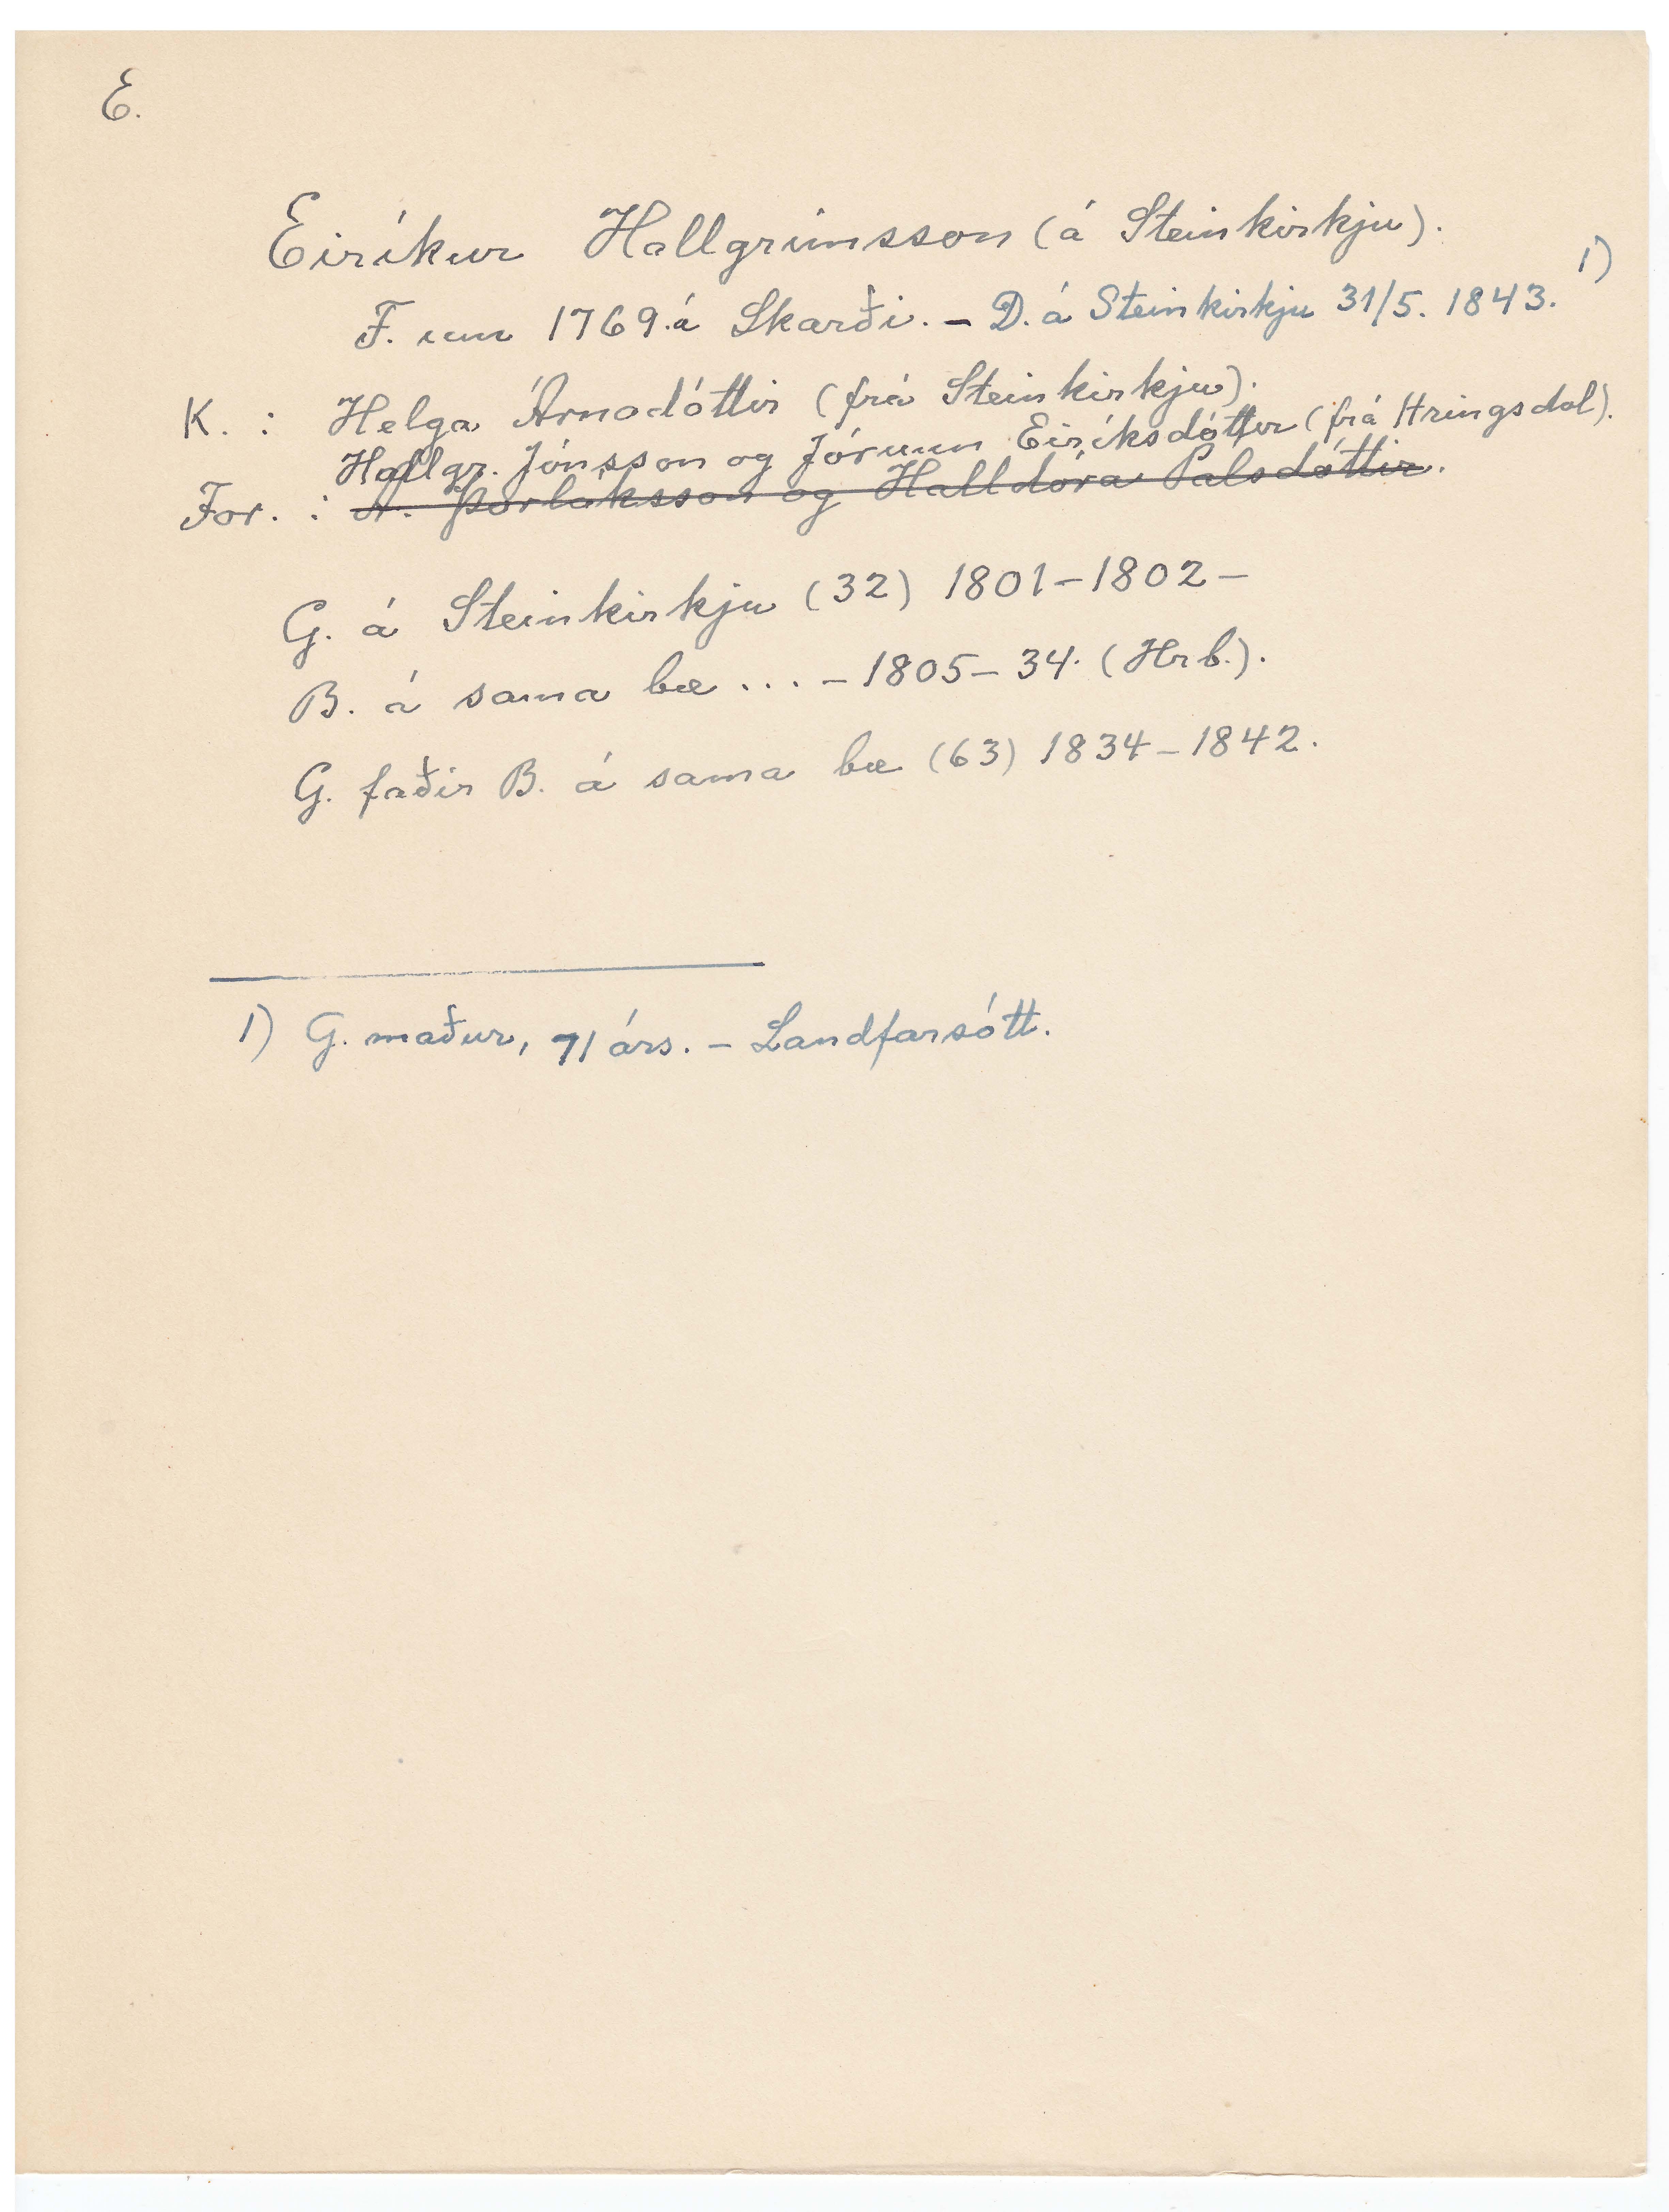 E.
Eiríkur Hallgrímsson (á Steinkirkju).
F. um 1769. á Skarði. – D. á Steinkirkju 31/5. 1843. 1)
K. : Helga Árnadóttir (frá Steinkirkju).
Hallgr. Jónsson og Jórunn Eiríksdóttir (frá Hringsdal).
For. : Á. Þorláksson og Halldóra Pálsdóttir.
G. á Steinkirkju (32) 1801–1802–
B. á sama bæ ... – 1805–34. (Hrb.).
G. faðir B. á sama bæ (63) 1834–1842.
1) G. maður, 71 árs. – Landfarsótt.